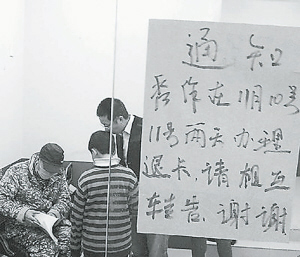 通知
暂停在11月10号
11号两天办理
退卡、请相互
转告、谢谢